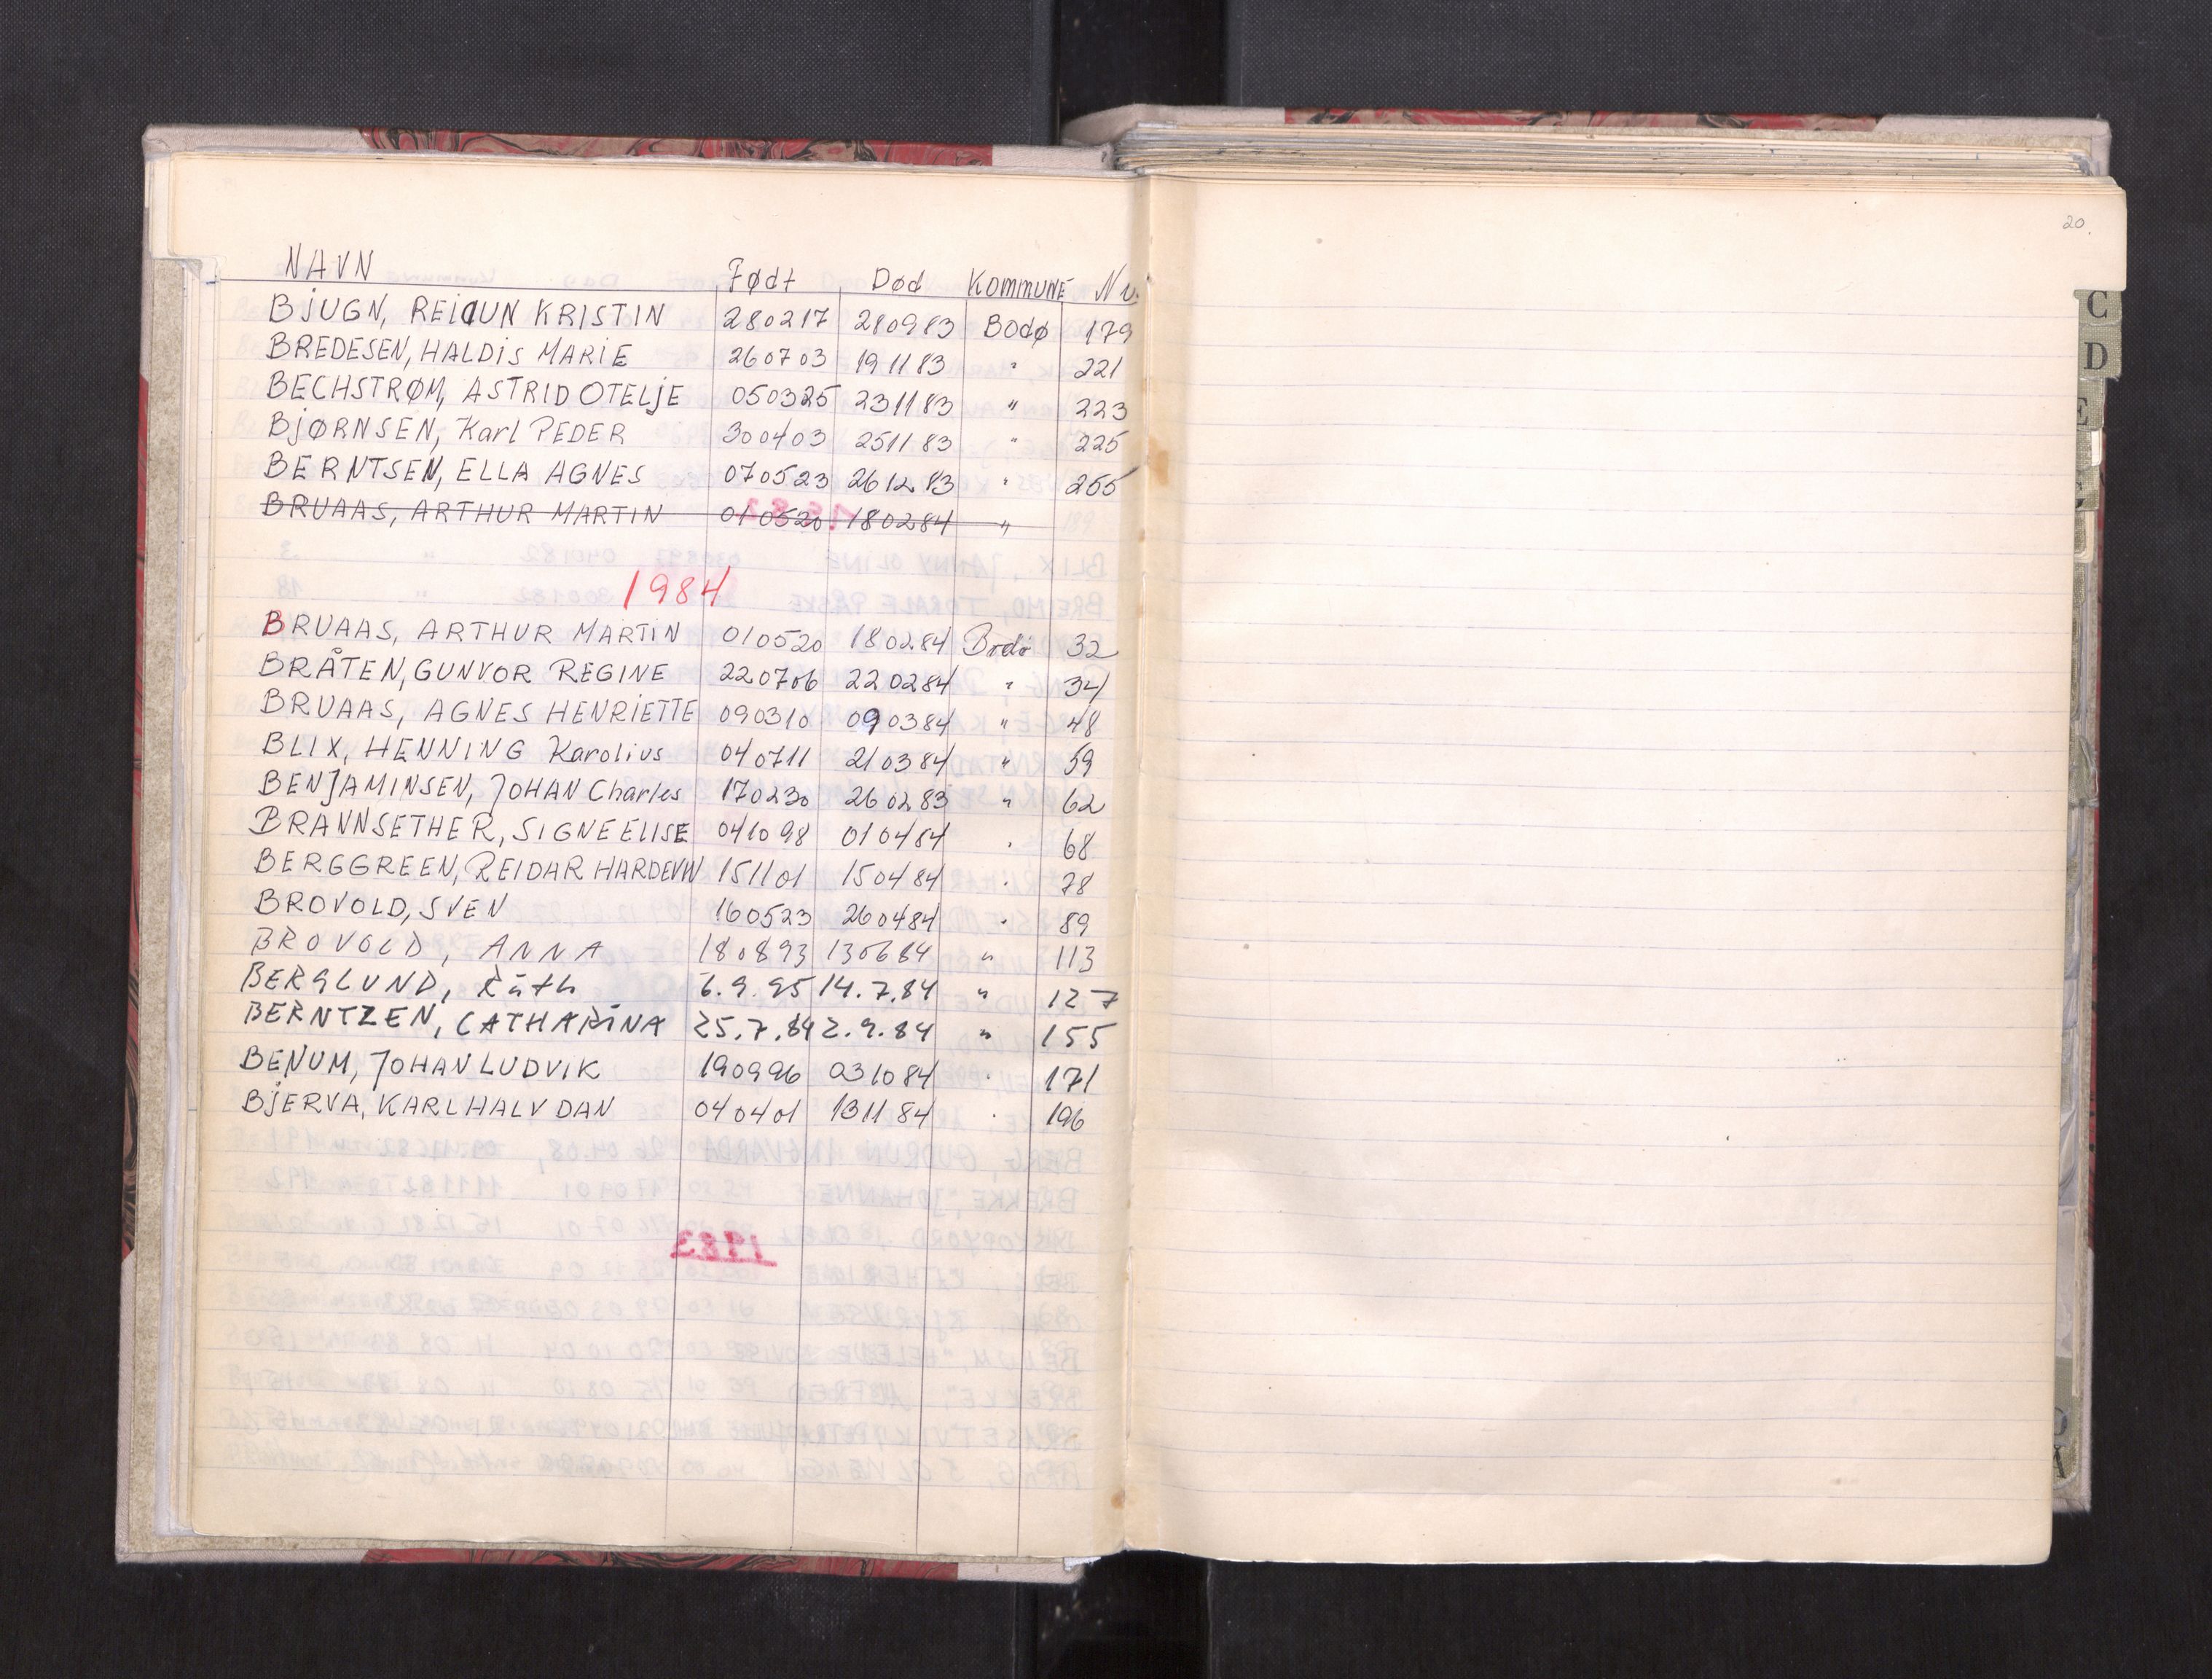 NAVN Født Død Kommune Nr.
BJUGN, REIDUN KRISTIN 280217 280983 Bodø 179
BREDESEN, HALDIS MARIE 260703 191183 " 221
BECHSTRØM, ASTRID OTELJE 050325 231183 " 223
BJØRNSEN, Karl PEDER 300403 251183 " 225
BERNTSEN, ELLA AGNES 070523 261283 " 255
BRUAAS, ARTHUR MARTIN 010520 180284 "
1984
BRUAAS, ARTHUR MARTIN 010520 180284 Bodø 32
BRÅTEN, GUNVOR REGINE 220706 220284 " 34
BRUAAS, AGNES HENRIETTE 090310 090384 " 48
BLIX, HENNING Karolius 040711 210384 " 59
BENJAMINSEN, JOHAN Charles 170230 260283 " 62
BRANNSETHER, SIGNE ELISE 041098 010484 " 68
BERGGREEN, REIDAR 151101 150484 " 78
BROVOLD, SVEN 160523 260484 " 89
BROVOLD, ANNA 180893 130684 " 113
BERGLUND, Ruth 6.9.95 14.7.84 " 127
BERNTZEN, CATHARINA 25.7.84 2.9.84 " 155
BENUM, JOHAN LUDVIK 190996 031084 " 171
BJERVA, KARL HALVDAN 040401 131184 " 196
20.
C
D
E